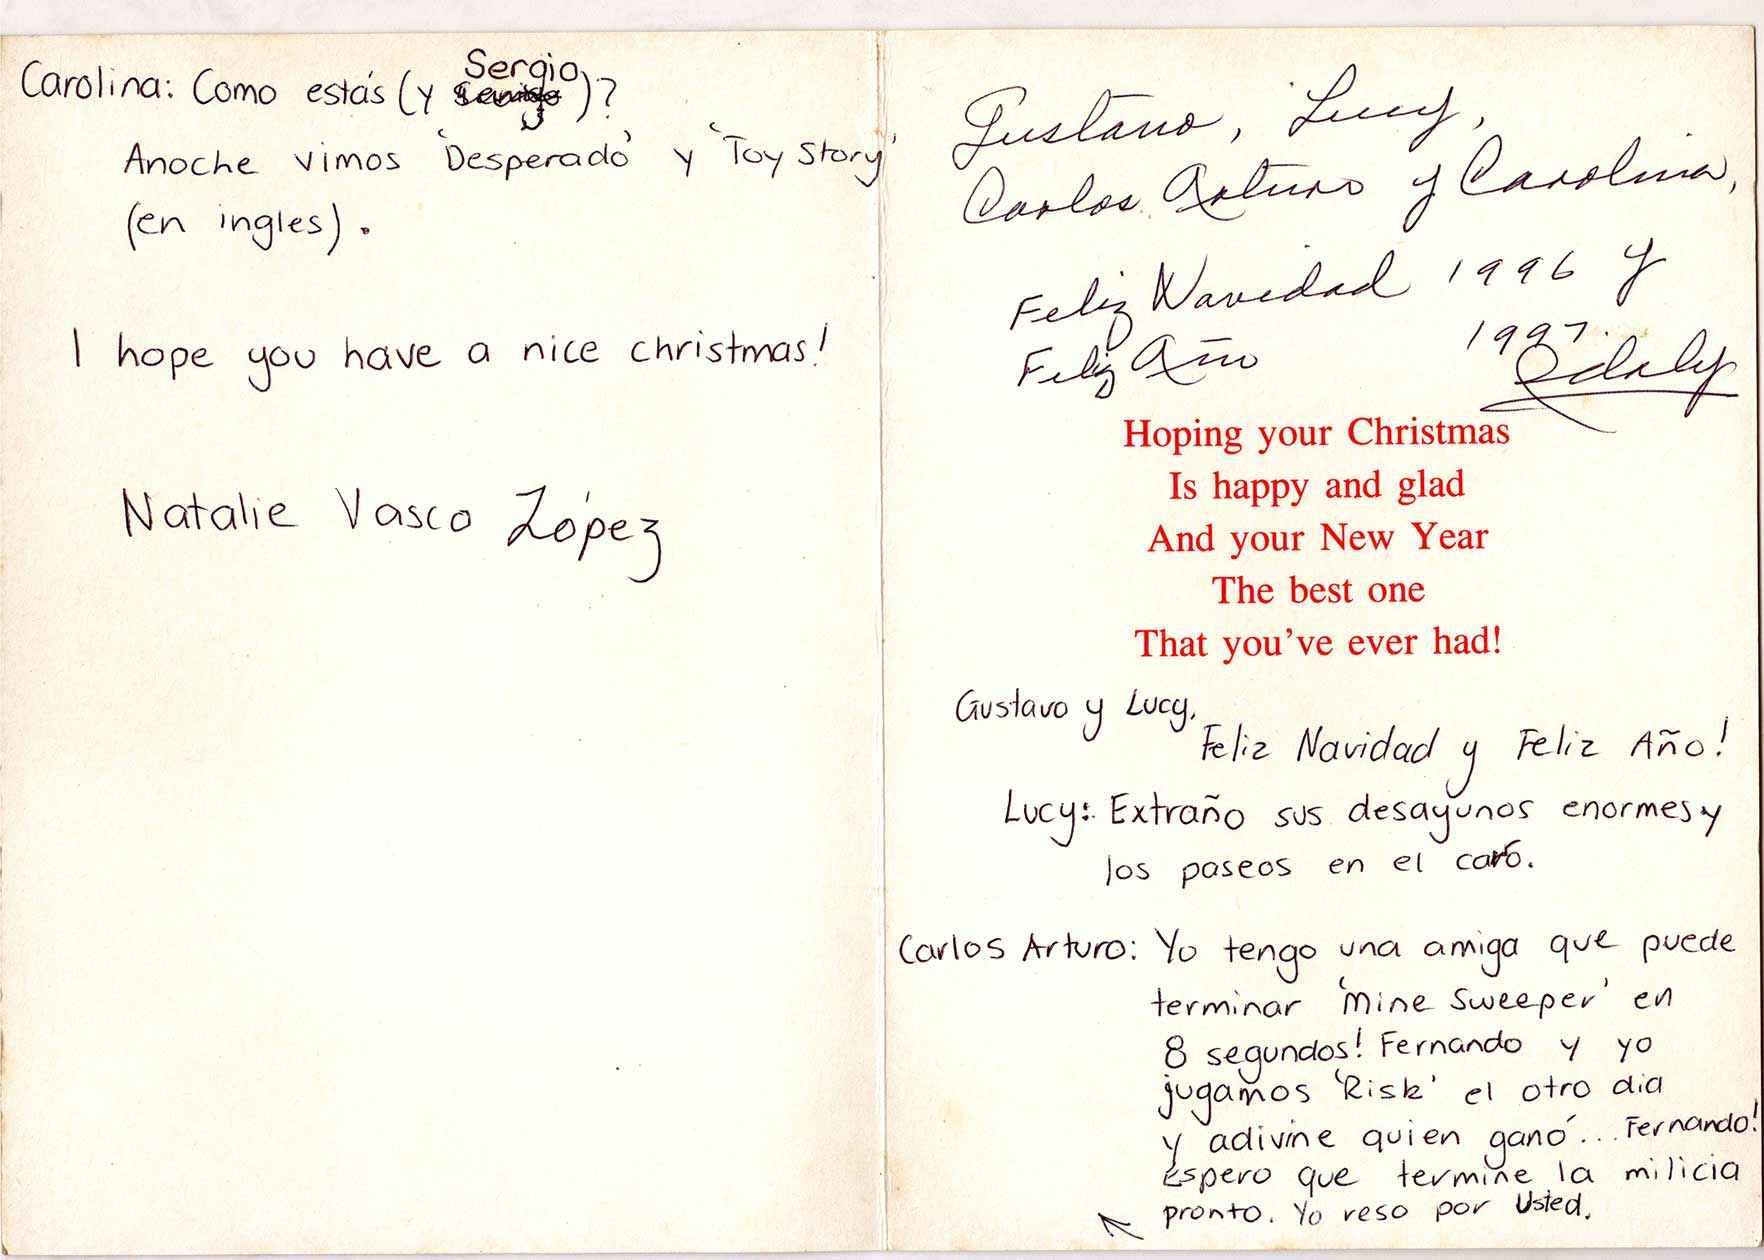 Carolina: Como estás (y Sergio)?
Anoche vimos 'Desperado' y 'Toy Story'
(en ingles).
I hope you have a nice christmas!
Natalie Vasco López
Gustavo, Lucy,
Carlos Arturo y Carolina,
Feliz Navidad 1996 y
Feliz Año 1997.
Odaly
Hoping your Christmas
Is happy and glad
And your New Year
The best one
That you've ever had!
Gustavo y Lucy,
Feliz Navidad y Feliz Año!
Lucy: Extraño sus desayunos enormes y
los paseos en el caro.
Carlos Arturo: Yo tengo una amiga que puede
terminar 'Mine Sweeper' en
8 segundos! Fernando y yo
jugamos 'Risk' el otro dia
y adivine quien ganó... Fernando!
Espero que termine la milicia
pronto. Yo reso por Usted.